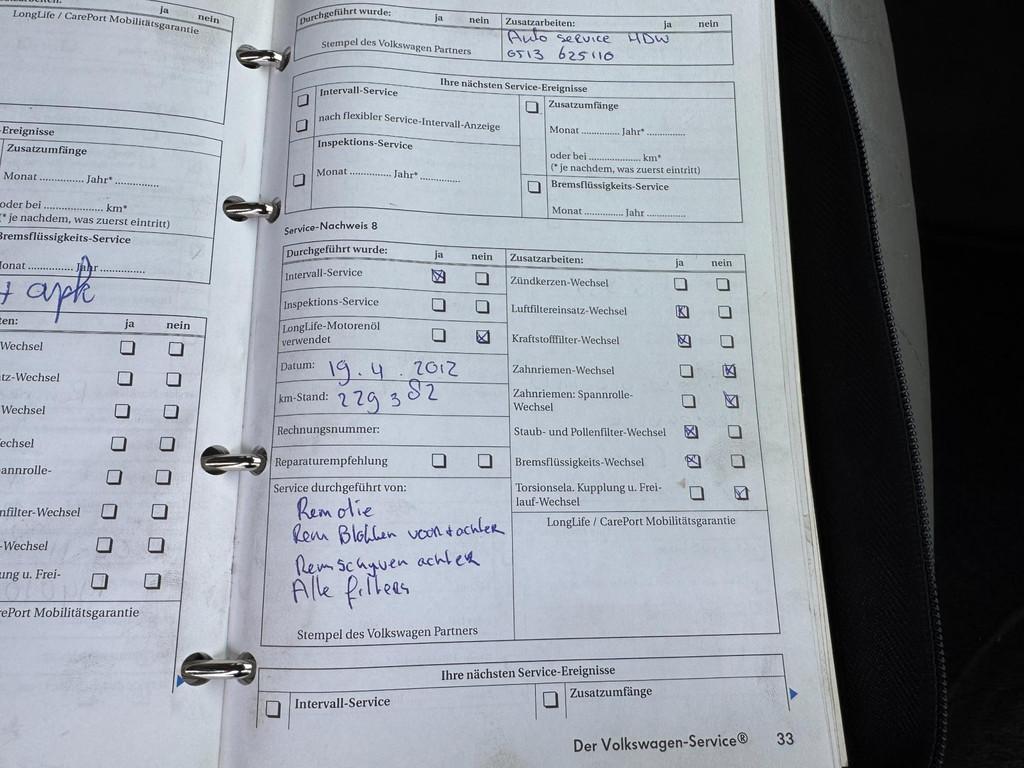 ja nein
LongLife / CarePort Mobilitätsgarantie
Ereignisse
Zusatzumfänge
Monat .............. Jahr* ..............
oder bei ................... km*
(* je nachdem, was zuerst eintritt)
Bremsflüssigkeits-Service
Monat .............. Jahr ..............
+ apk
ten: ja nein
Wechsel
tz-Wechsel
Wechsel
echsel
annrolle-
nfilter-Wechsel
-Wechsel
ung u. Frei-
rePort Mobilitätsgarantie
Durchgeführt wurde: ja nein Zusatzarbeiten: ja nein
Auto service HDW
0513 625110
Stempel des Volkswagen Partners
Ihre nächsten Service-Ereignisse
Intervall-Service
nach flexibler Service-Intervall-Anzeige
Inspektions-Service
Monat .............. Jahr* ..............
Zusatzumfänge
Monat .............. Jahr* ..............
oder bei ................... km*
(* je nachdem, was zuerst eintritt)
Bremsflüssigkeits-Service
Monat .............. Jahr ..............
Service-Nachweis 8
Durchgeführt wurde: ja nein
Intervall-Service
Inspektions-Service
LongLife-Motorenöl
verwendet
Datum: 19.4.2012
km-Stand: 229382
Rechnungsnummer:
Reparaturempfehlung
Service durchgeführt von:
Remolie
Rem Blokken voor+achter
Remschyven achter
Alle filters
Stempel des Volkswagen Partners
Zusatzarbeiten: ja nein
Zündkerzen-Wechsel
Luftfiltereinsatz-Wechsel
Kraftstofffilter-Wechsel
Zahnriemen-Wechsel
Zahnriemen: Spannrolle-
Wechsel
Staub- und Pollenfilter-Wechsel
Bremsflüssigkeits-Wechsel
Torsionsela. Kupplung u. Frei-
lauf-Wechsel
LongLife / CarePort Mobilitätsgarantie
Ihre nächsten Service-Ereignisse
Intervall-Service
Zusatzumfänge
Der Volkswagen-Service® 33